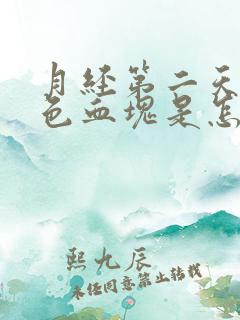 月经第二天
色血块是怎
熙九辰
未经同意禁止转载